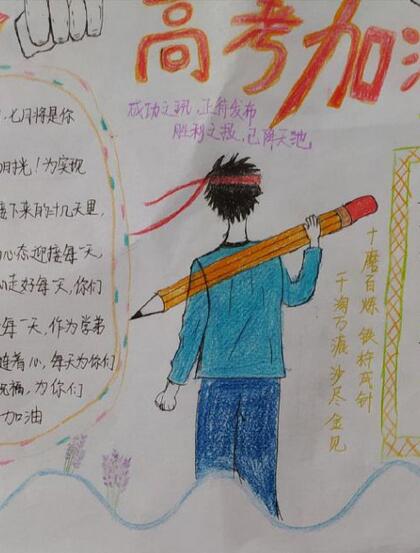 高考加油
成功之讯,正待发布
胜利之报,已降天池
,七月将是你
时光!为实现
接下来的十几天里,
心态迎接每一天
心走好每一天,你们
每一天,作为学弟
随着心,每天为你们
祝福,为你们
加油
十磨百炼 铁杵成针
千淘万漉 沙尽金见